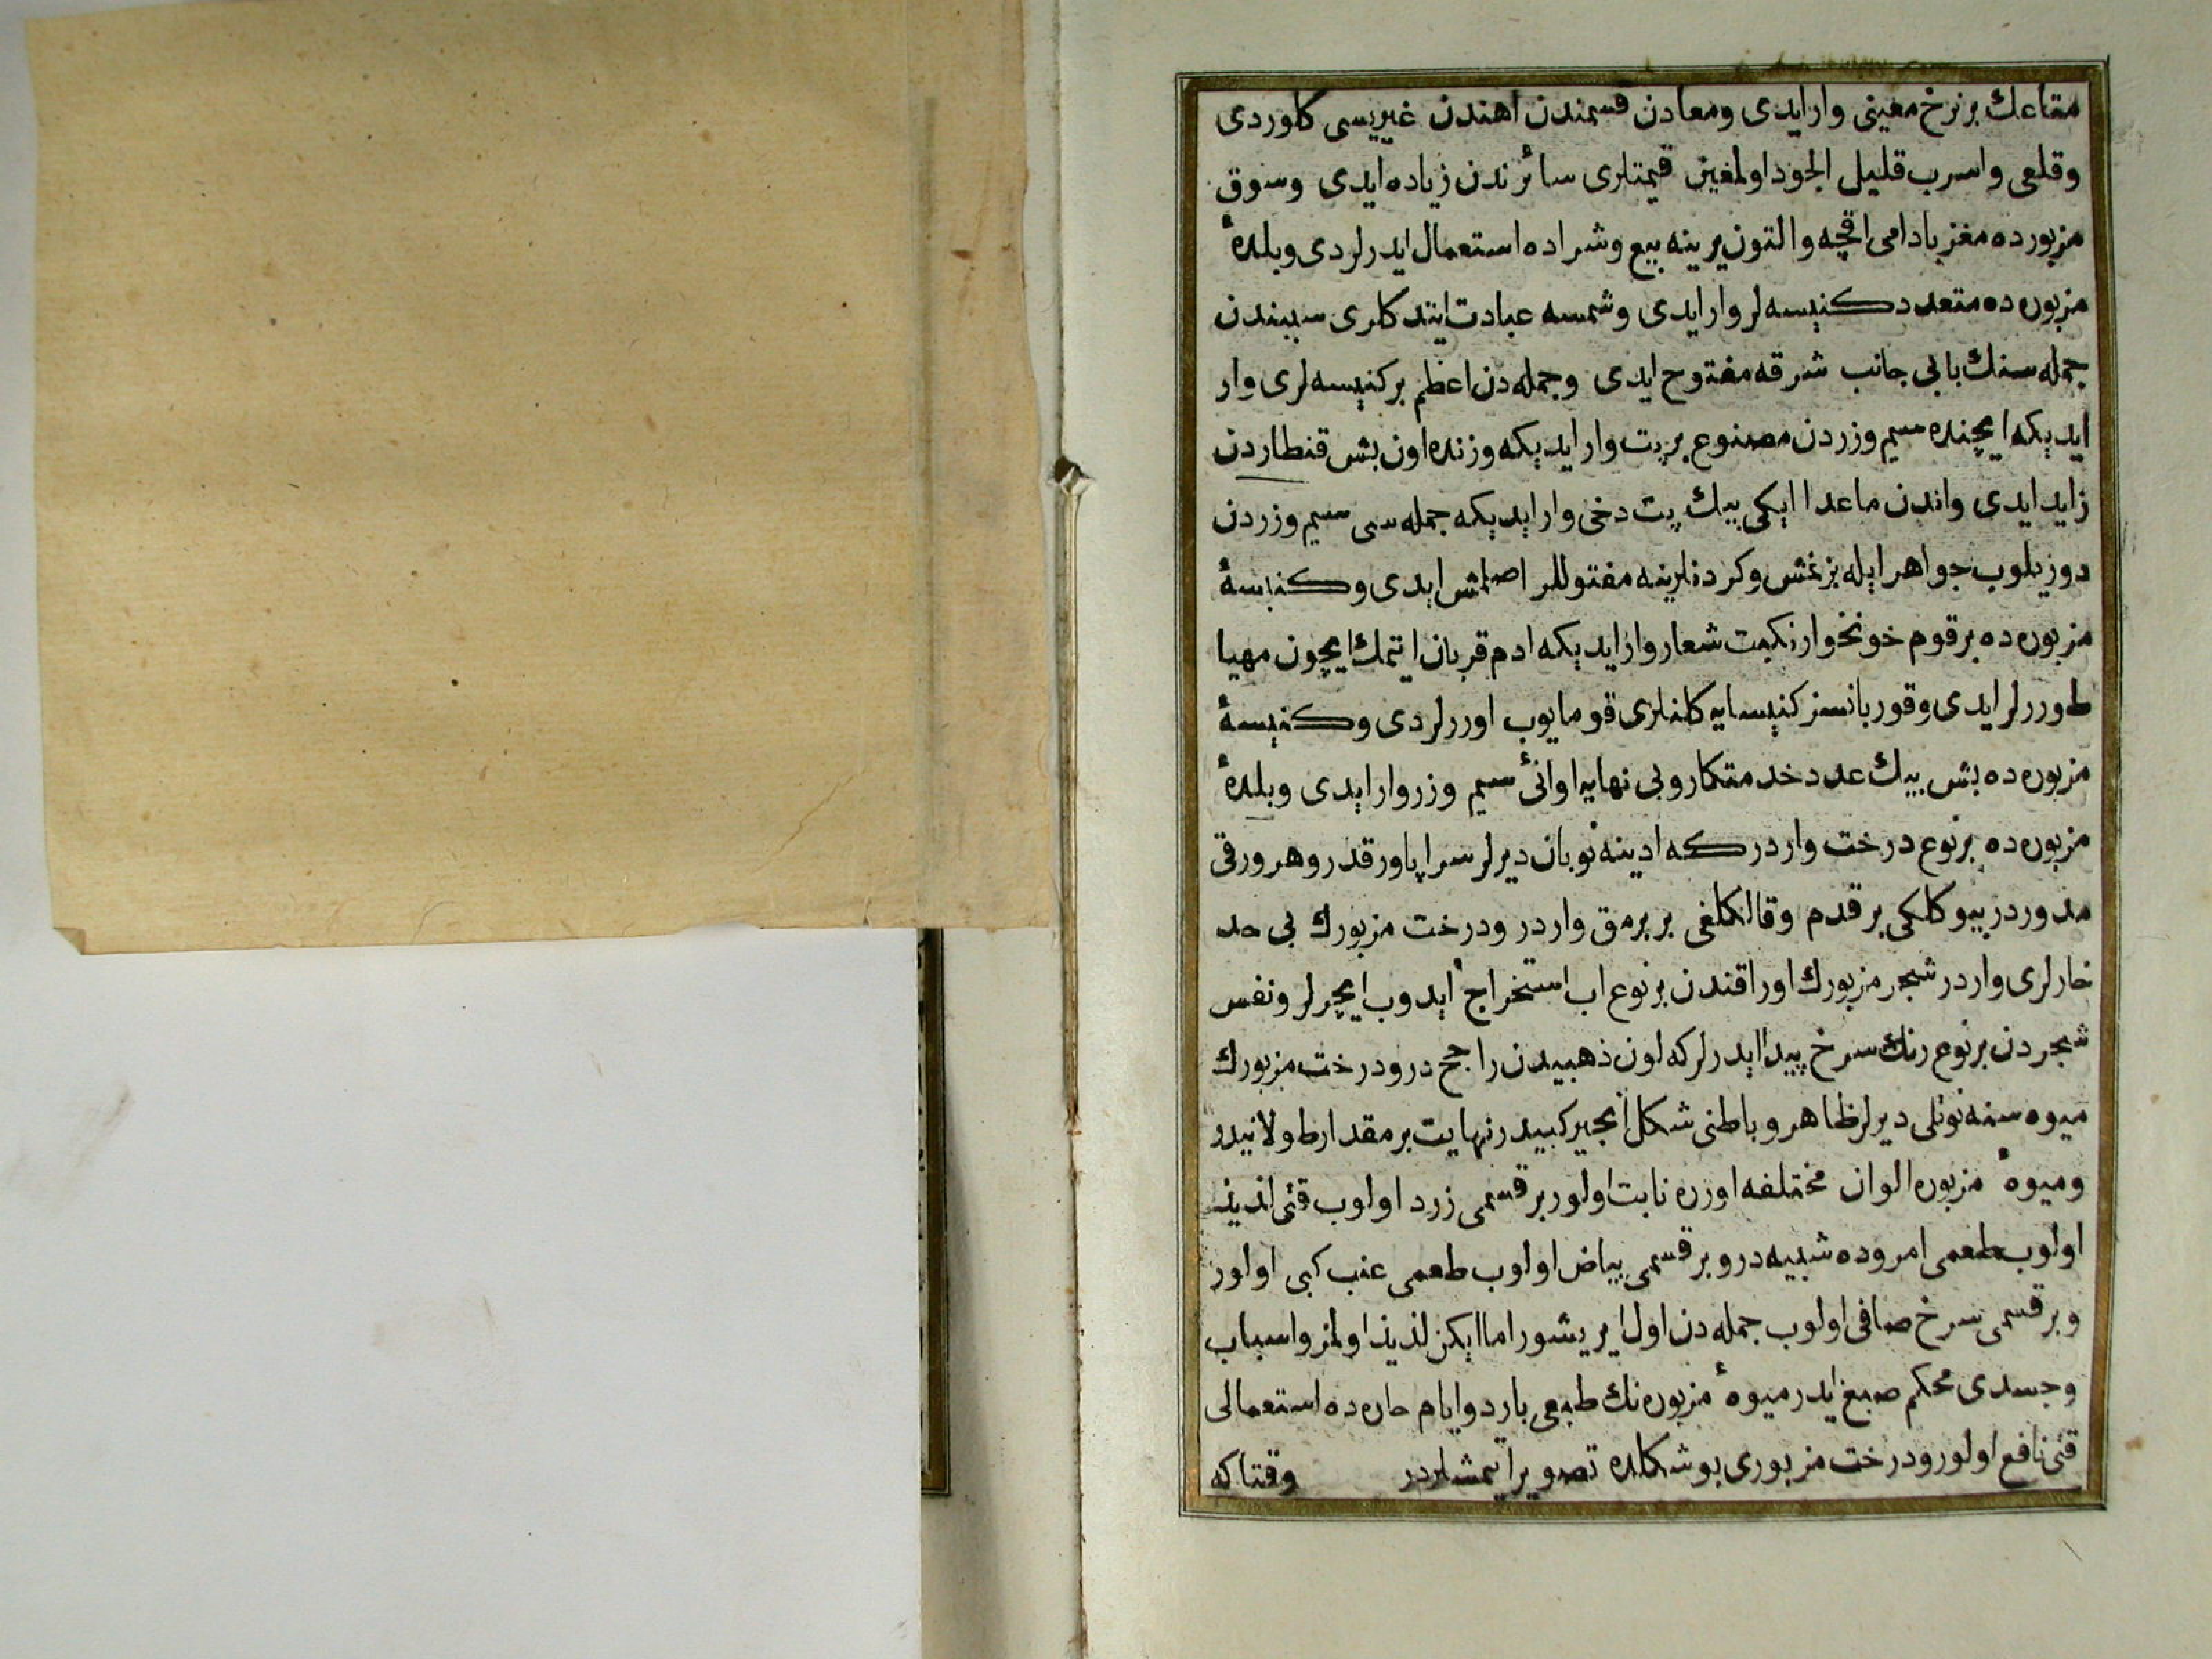 متاعك بر نرخ معینی وار ایدی ومعادن قسمندن اهندن غیریسی كلوردی
وقلعی واسرب قلیل الجود اولمغین قیمتلری سائرندن زیاده ایدی وسوق
مزبورده مغز بادامی اقچه والتون یرینه بیع وشراده استعمال ایدرلردی وبلدهٔ
مزبوره ده متعدد كنیسه لر وار ایدی وشمسه عبادت ایتدكلری سببندن
جمله سنك بابی جانب شرقه مفتوح ایدی وجمله دن اعظم بر كنیسه لری وار
ایدیكه ایچنده سیم وزردن مصنوع بر پت وار ایدیكه وزنده اون بش قنطاردن
زاید ایدی واندن ماعدا ایكی بیك پت دخی وار ایدیكه جمله سی سیم وزردن
دوزیلوب جواهر ایله بزنمش وكردنلرینه مفتوللر اصلمش ایدی وكنیسهٔ
مزبوره ده بر قوم خونخوار نكبت شعار وار ایدیكه ادم قربان ایتمك ایچون مهیا
طوررلر ایدی وقوربانسز كنیسایه كلنلری قومایوب اوررلردی وكنیسهٔ
مزبوره ده بش بیك عدد خدمتكار وبی نهایه اوانیٔ سیم وزر وار ایدی وبلدهٔ
مزبوره ده بر نوع درخت واردر كه ادینه نوبان دیرلر سراپا ورقدر وهر ورقی
مدوردر بیوكلكی بر قدم وقالكلغی بر برمق واردر ودرخت مزبورك بی حد
خارلری واردر شجر مزبورك اوراقندن بر نوع اب استخراج ایدوب ایچرلر ونفس
شجردن بر نوع رنك سرخ پیدا ایدرلر كه لون ذهبیدن راجحدر ودرخت مزبورك
میوه سنه نوتلی دیرلر ظاهر وباطنی شكل انجیر كبیدر نهایت بر مقدار طولانیدر
ومیوهٔ مزبوره الوان مختلفه اوزره نابت اولور بر قسمی زرد اولوب قتی لذیذ
اولوب طعمی امروده شبیه در وبر قسمی بیاض اولوب طعمی عنب كبی اولور
وبر قسمی سرخ صافی اولوب جمله دن اول ایریشور اما ایكن لذیذ اولمز واسباب
وجسدی محكم صبغ ایدر میوهٔ مزبوره نك طبعی بارد وایام حاره ده استعمالی
قتی نافع اولور ودرخت مزبوری بو شكلده تصویر اتمشلردر وقتاكه